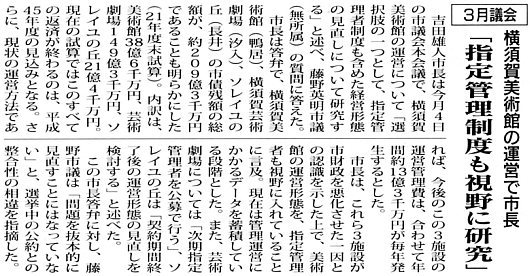 3月議会
横須賀美術館の運営で市長
「指定管理制度も視野に研究」
吉田雄人市長は3月4日
の市議会本会議で、横須賀
美術館の運営について「選
択肢の一つとして、指定管
理者制度も含めた経営形態
の見直しについて研究す
る」と述べ、藤野英明市議
(無所属)の質問に答えた。
市長は答弁で、横須賀美
術館(鴨居)、横須賀芸術
劇場(汐入)、ソレイユの
丘(長井)の市債残額の総
額が、約209億3千万円
であることも明らかにした
(21年度末試算)。内訳は、
美術館38億6千万円、芸術
劇場149億3千万円、ソ
レイユの丘21億4千万円。
現在の試算ではこのすべて
の返済が終わるのは、平成
45年度の見込みとなる。さ
らに、現状の運営方法であ
れば、今後のこの3施設の
運営管理費は、合わせて年
間約13億3千万円が毎年発
生するとした。
市長は、これら3施設が
市財政を悪化させた一因と
の認識を示した上で、美術
館の運営形態を、指定管理
者も視野に入れていること
に言及。現在は管理運営に
かかるデータを蓄積してい
る段階とした。また、芸術
劇場については「次期指定
管理者を公募で行う」、ソ
レイユの丘は「契約期間終
了後の運営形態の見直しを
検討する」と述べた。
この市長答弁に対し、藤
野市議は「問題を抜本的に
見直すことにはなっていな
い」と、選挙中の公約との
整合性の相違を指摘した。